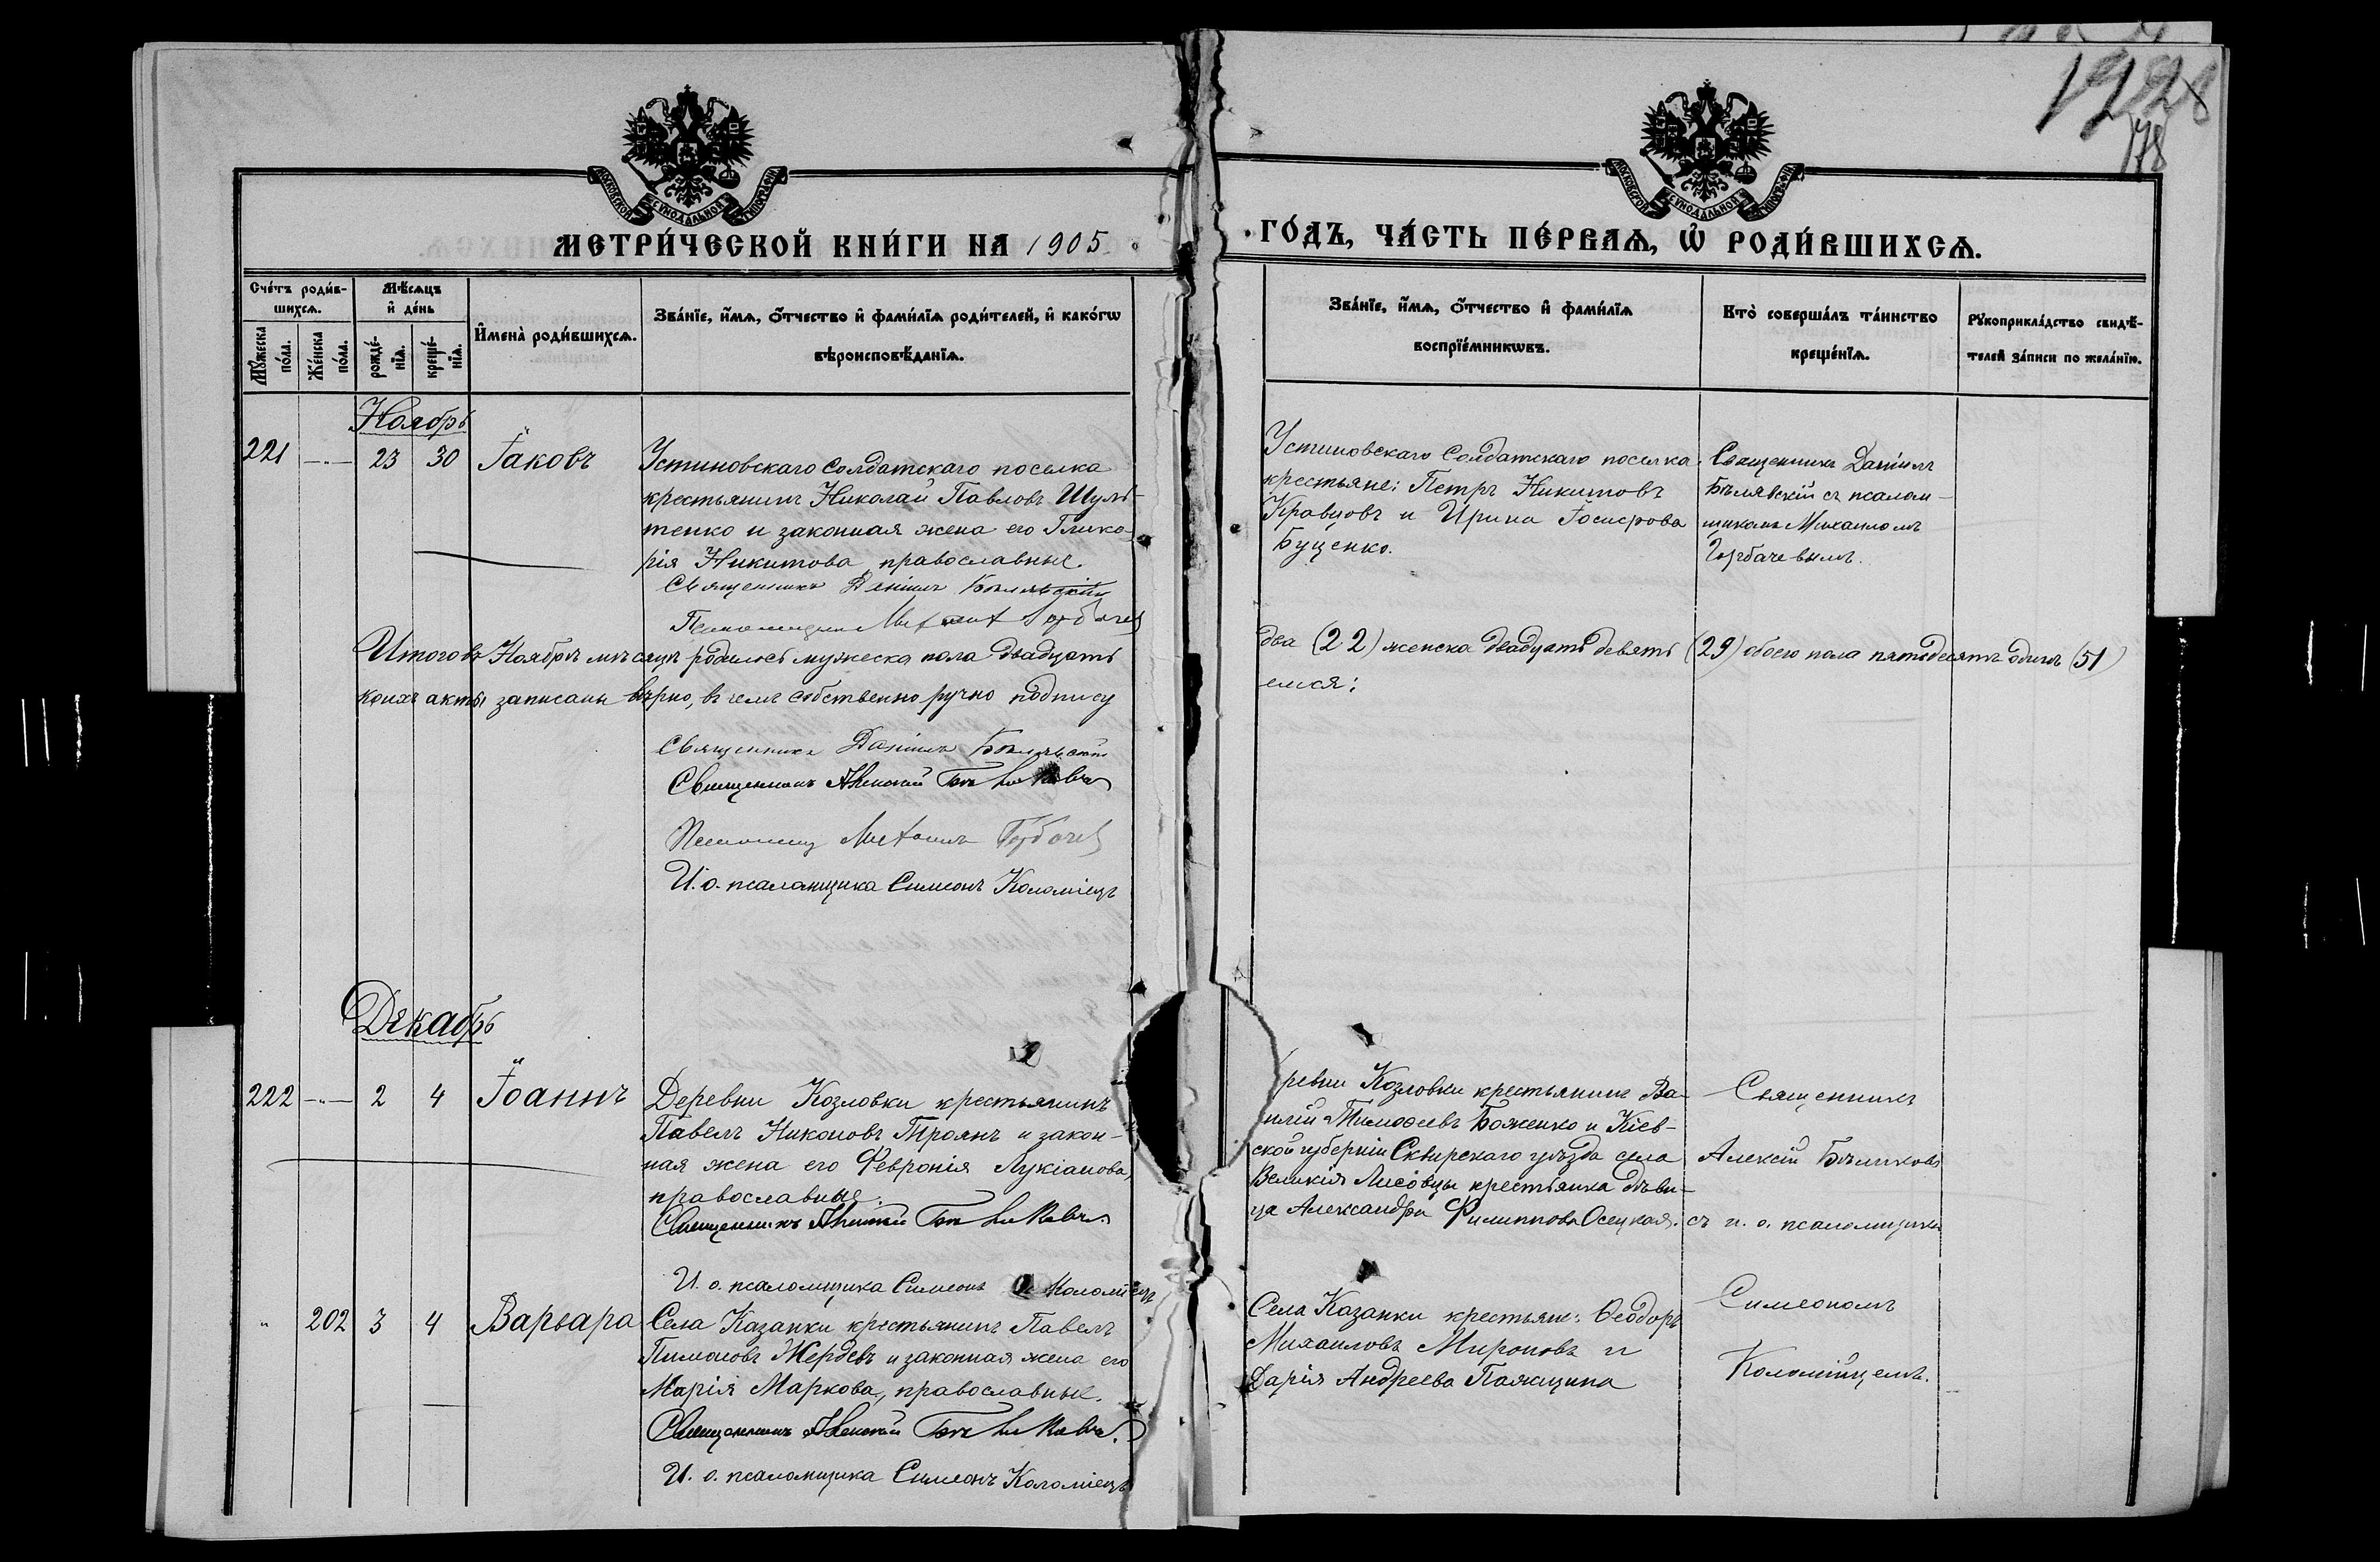 1928
78
МОСКОВСКОЙ СѴНОДАЛЬНОЙ ТИПОГРАФІИ
МОСКОВСКОЙ СѴНОДАЛЬНОЙ ТИПОГРАФІИ
МЕТРИ́ЧЕСКОЙ КНИ́ГИ НА 1905
ГО́ДЪ, ЧА́СТЬ ПЕ́РВАѦ, Ѡ҆ РОДИ́ВШИХСѦ.
Сче́тъ роди́в-
шихсѧ.
Мꙋ́жеска по́ла.
Же́нска по́ла.
Мѣ́сѧцъ
и҆ де́нь
рожде́-
нїѧ.
креще́-
нїѧ.
И҆мена̀ роди́вшихсѧ.
Зва́нїе, и҆́мѧ, ѻ҆́тчество и҆ фами́лїѧ роди́телей, и҆ како́гѡ
вѣроисповѣ́данїѧ.
Зва́нїе, и҆́мѧ, ѻ҆́тчество и҆ фами́лїѧ
воспрїе́мникѡвъ.
Кто̀ соверша́лъ та́инство
креще́нїѧ.
Рꙋкоприкла́дство свидѣ́-
телей за́писи по жела́нїю.
Ноябрь
221 —"— 23 30 Іаковъ
Устиновскаго Солдатскаго поселка
крестьянинъ Николай Павловъ Шуль-
тенко и законная жена его Глике-
рія Никитова православные.
Священникъ Даніилъ Бѣлявскій
Псаломщикъ Михаилъ Горбачев
Устиновскаго Солдатскаго поселка
крестьяне: Петръ Никитовъ
Кравцовъ и Ирина Іосифова
Буценко.
Священникъ Даніилъ
Бѣлявскій съ псалом-
щикомъ Михаиломъ
Горбачевымъ.
Итого въ Ноябрѣ мѣсяцѣ родилось мужеска пола двадцать
два (22) женска двадцать девять (29) обоего пола пятьдесятъ одинъ (51)
коихъ акты записаны вѣрно, въ чемъ собственноручно подпису
емся:
Священникъ Даніилъ Бѣлявскій
Священникъ Алексій Бѣликовъ
Псаломщ Михаилъ Горбачев
И. о. псаломщика Симеонъ Коломіецъ
Декабрь
222 —"— 2 4 Іоаннъ
Деревни Козловки крестьянинъ
Павелъ Никоновъ Троянъ и закон-
ная жена его Февронія Лукіанова,
православные.
Священникъ Алексій Бѣликовъ
И. о. псаломщика Симеонъ Коломіецъ
ревни Козловки крестьянинъ Ва-
илій Тимоѳеевъ Боженко и Кіев-
ской губерніи Сквирскаго уѣзда села
Великія Лисовцы крестьянка дѣви-
ца Александра Филиппова Осецкая.
Священникъ
Алексій Бѣликовъ
съ и. о. псаломщика
Симеономъ
Коломійцемъ.
" 202 3 4 Варвара
Села Казанки крестьянинъ Павелъ
Пимоновъ Жердевъ и законная жена его
Марія Маркова, православные.
Священникъ Алексій Бѣликовъ
И. о. псаломщика Симеонъ Коломіецъ
Села Казанки крестьяне: Ѳеодоръ
Михаиловъ Мироновъ и
Дарія Андреева